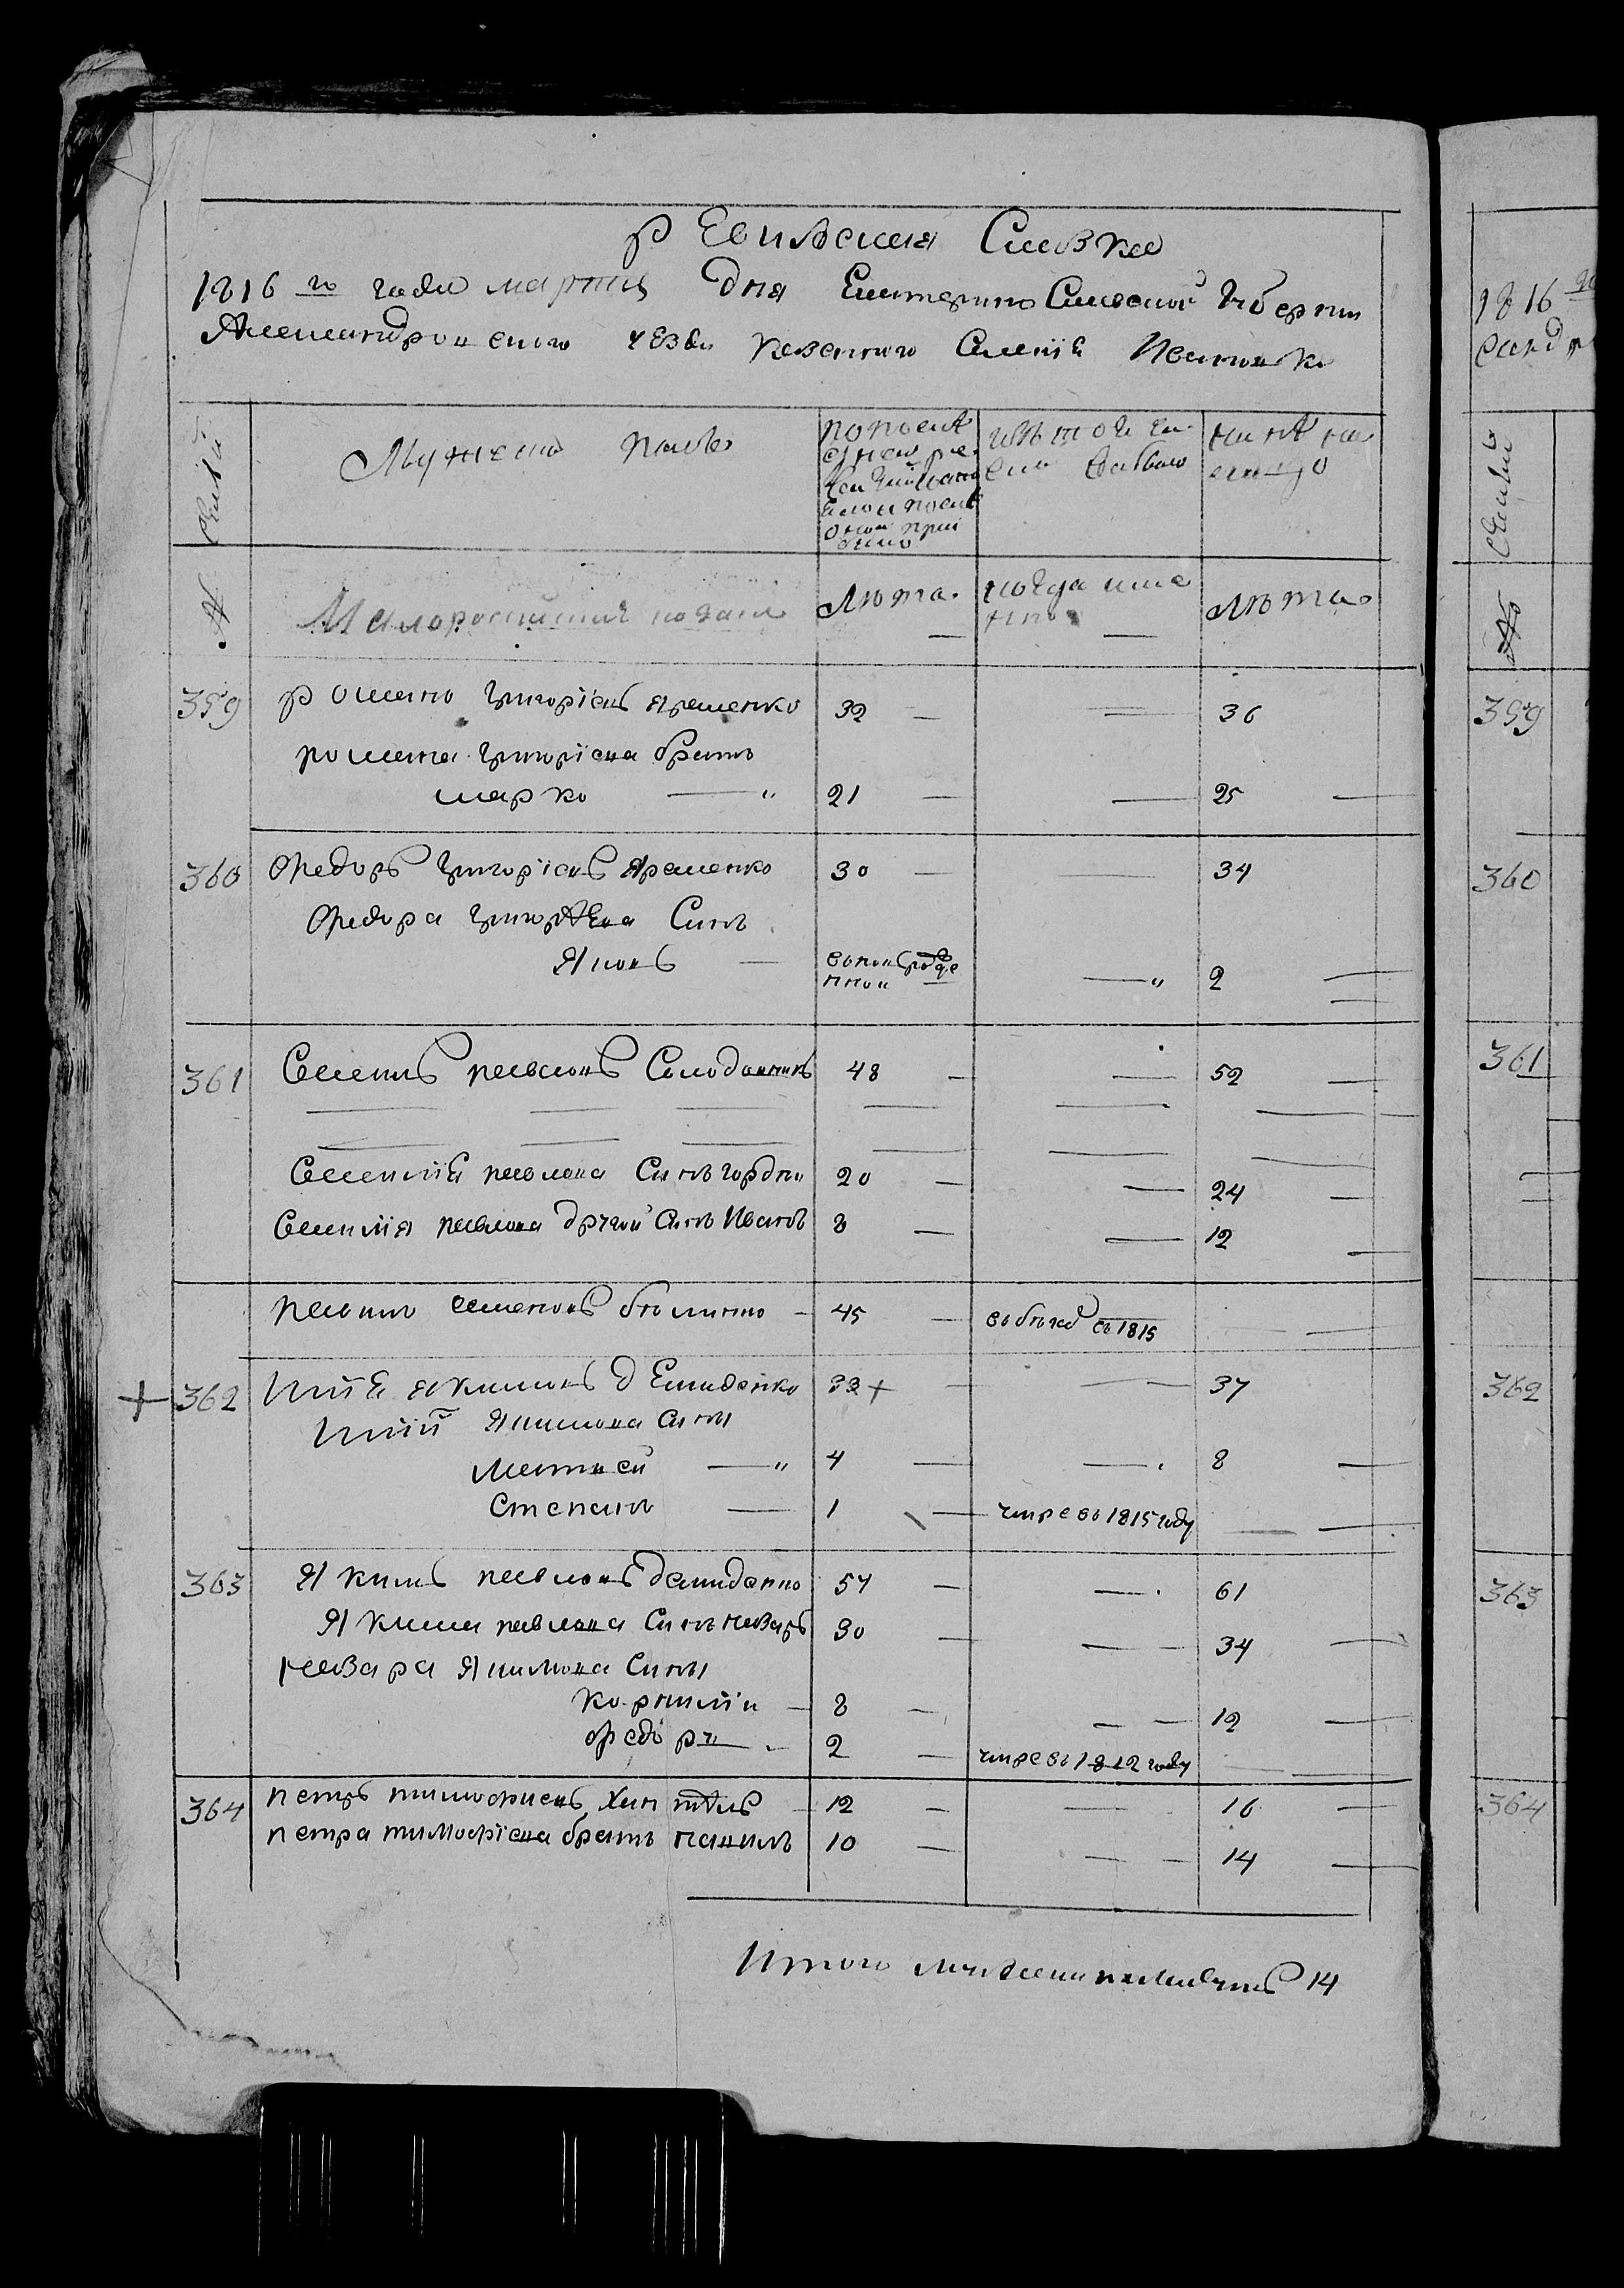 Ревизская Сказка
1816 го года марта дня Екатеринославской губернии
Александровского уезда казенного Селения Ивановки
Семьи
Мужеской полъ
по последней ревизии состояло и после оной прибыло
изъ того числа выбыло
ныне на лицо
№
Малоросийские козаки
Лѣта.
когда имянно
Лѣта
359
романъ григоріевъ яременко 32 — 36
романа григоріева братъ
марко — " 21 — 25
360
Федоръ григоріевъ Яременко 30 — 34
Федора григорѣева Синъ
Яковъ — вновь рожденной — " 2
361
Семенъ павловъ Солодовникъ 48 — 52
павлова Синъ гордѣй 20 — 24
павлова другий Синъ Иванъ 8 — 12
семеновъ 45 — въ бѣгахъ съ 1815
362
якимовъ Демиденко 33 + — 37
Якимова Сини
Матвей — " 4 — 8
Степанъ — 1 — умре въ 1815 году
363
Якимъ павловъ демиденко 57 — 61
Якима павлова Синъ назаръ 30 — 34
назара Якимова Сини
корнилій — 8 — 12
федоръ — 2 — умре въ 1812 году
364
петръ тимофиевъ 12 — 16
петра тимофіева братъ 10 — 14
Итого мужеска наличныхъ 14
1816 го
санд
Семьи
№
359
360
361
362
363
364